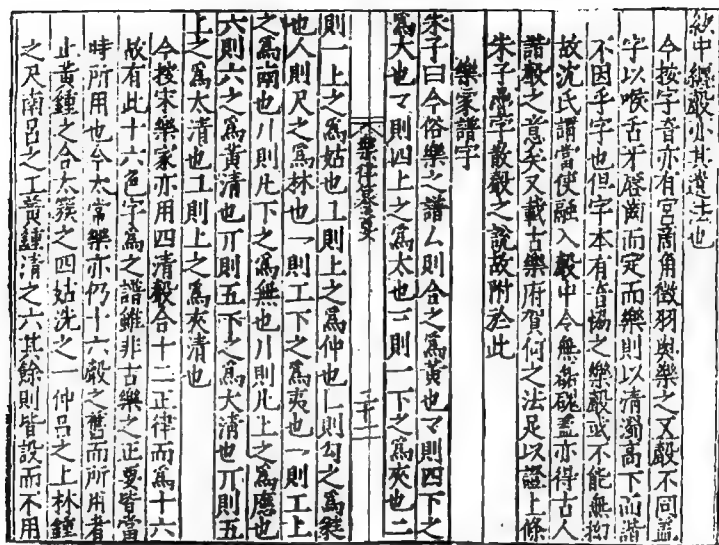 於中纏聲亦其遺法也
今按字音亦有宮商角徵羽與樂之又聲不同蓋
字以喉舌牙唇齒而定而樂則以清濁高下而諧
不因乎字也但字本有音協之樂聲或不能無拘
故沈氏謂當使融入聲中令無磊磈蓋亦得古人
諧聲之意矣又載古樂府賀何之法足以證上條
朱子疊字散聲之說故附於此
樂家譜字
朱子曰今俗樂之譜厶則合之爲黃也マ則四下之
爲大也マ則四上之爲太也二則一下之爲夾也二
樂律纂要
二十二
則一上之爲姑也𠃊則上之爲仲也𠃊則勾之爲蕤
也人則尺之爲林也一則工下之爲夷也一則工上
之爲南也川則凡下之爲無也川則凡上之爲應也
六則六之爲黃清也丌則五下之爲大清也丌則五
上之爲太清也𠃊則上之爲夾清也
今按宋樂家亦用四清聲合十二正律而爲十六
故有此十六色字爲之譜雖非古樂之正要皆當
時所用也今太常樂亦仍十六聲之舊而所用者
止黃鍾之合太簇之四姑洗之一仲呂之上林鍾
之尺南呂之工黃鍾清之六其餘則皆設而不用